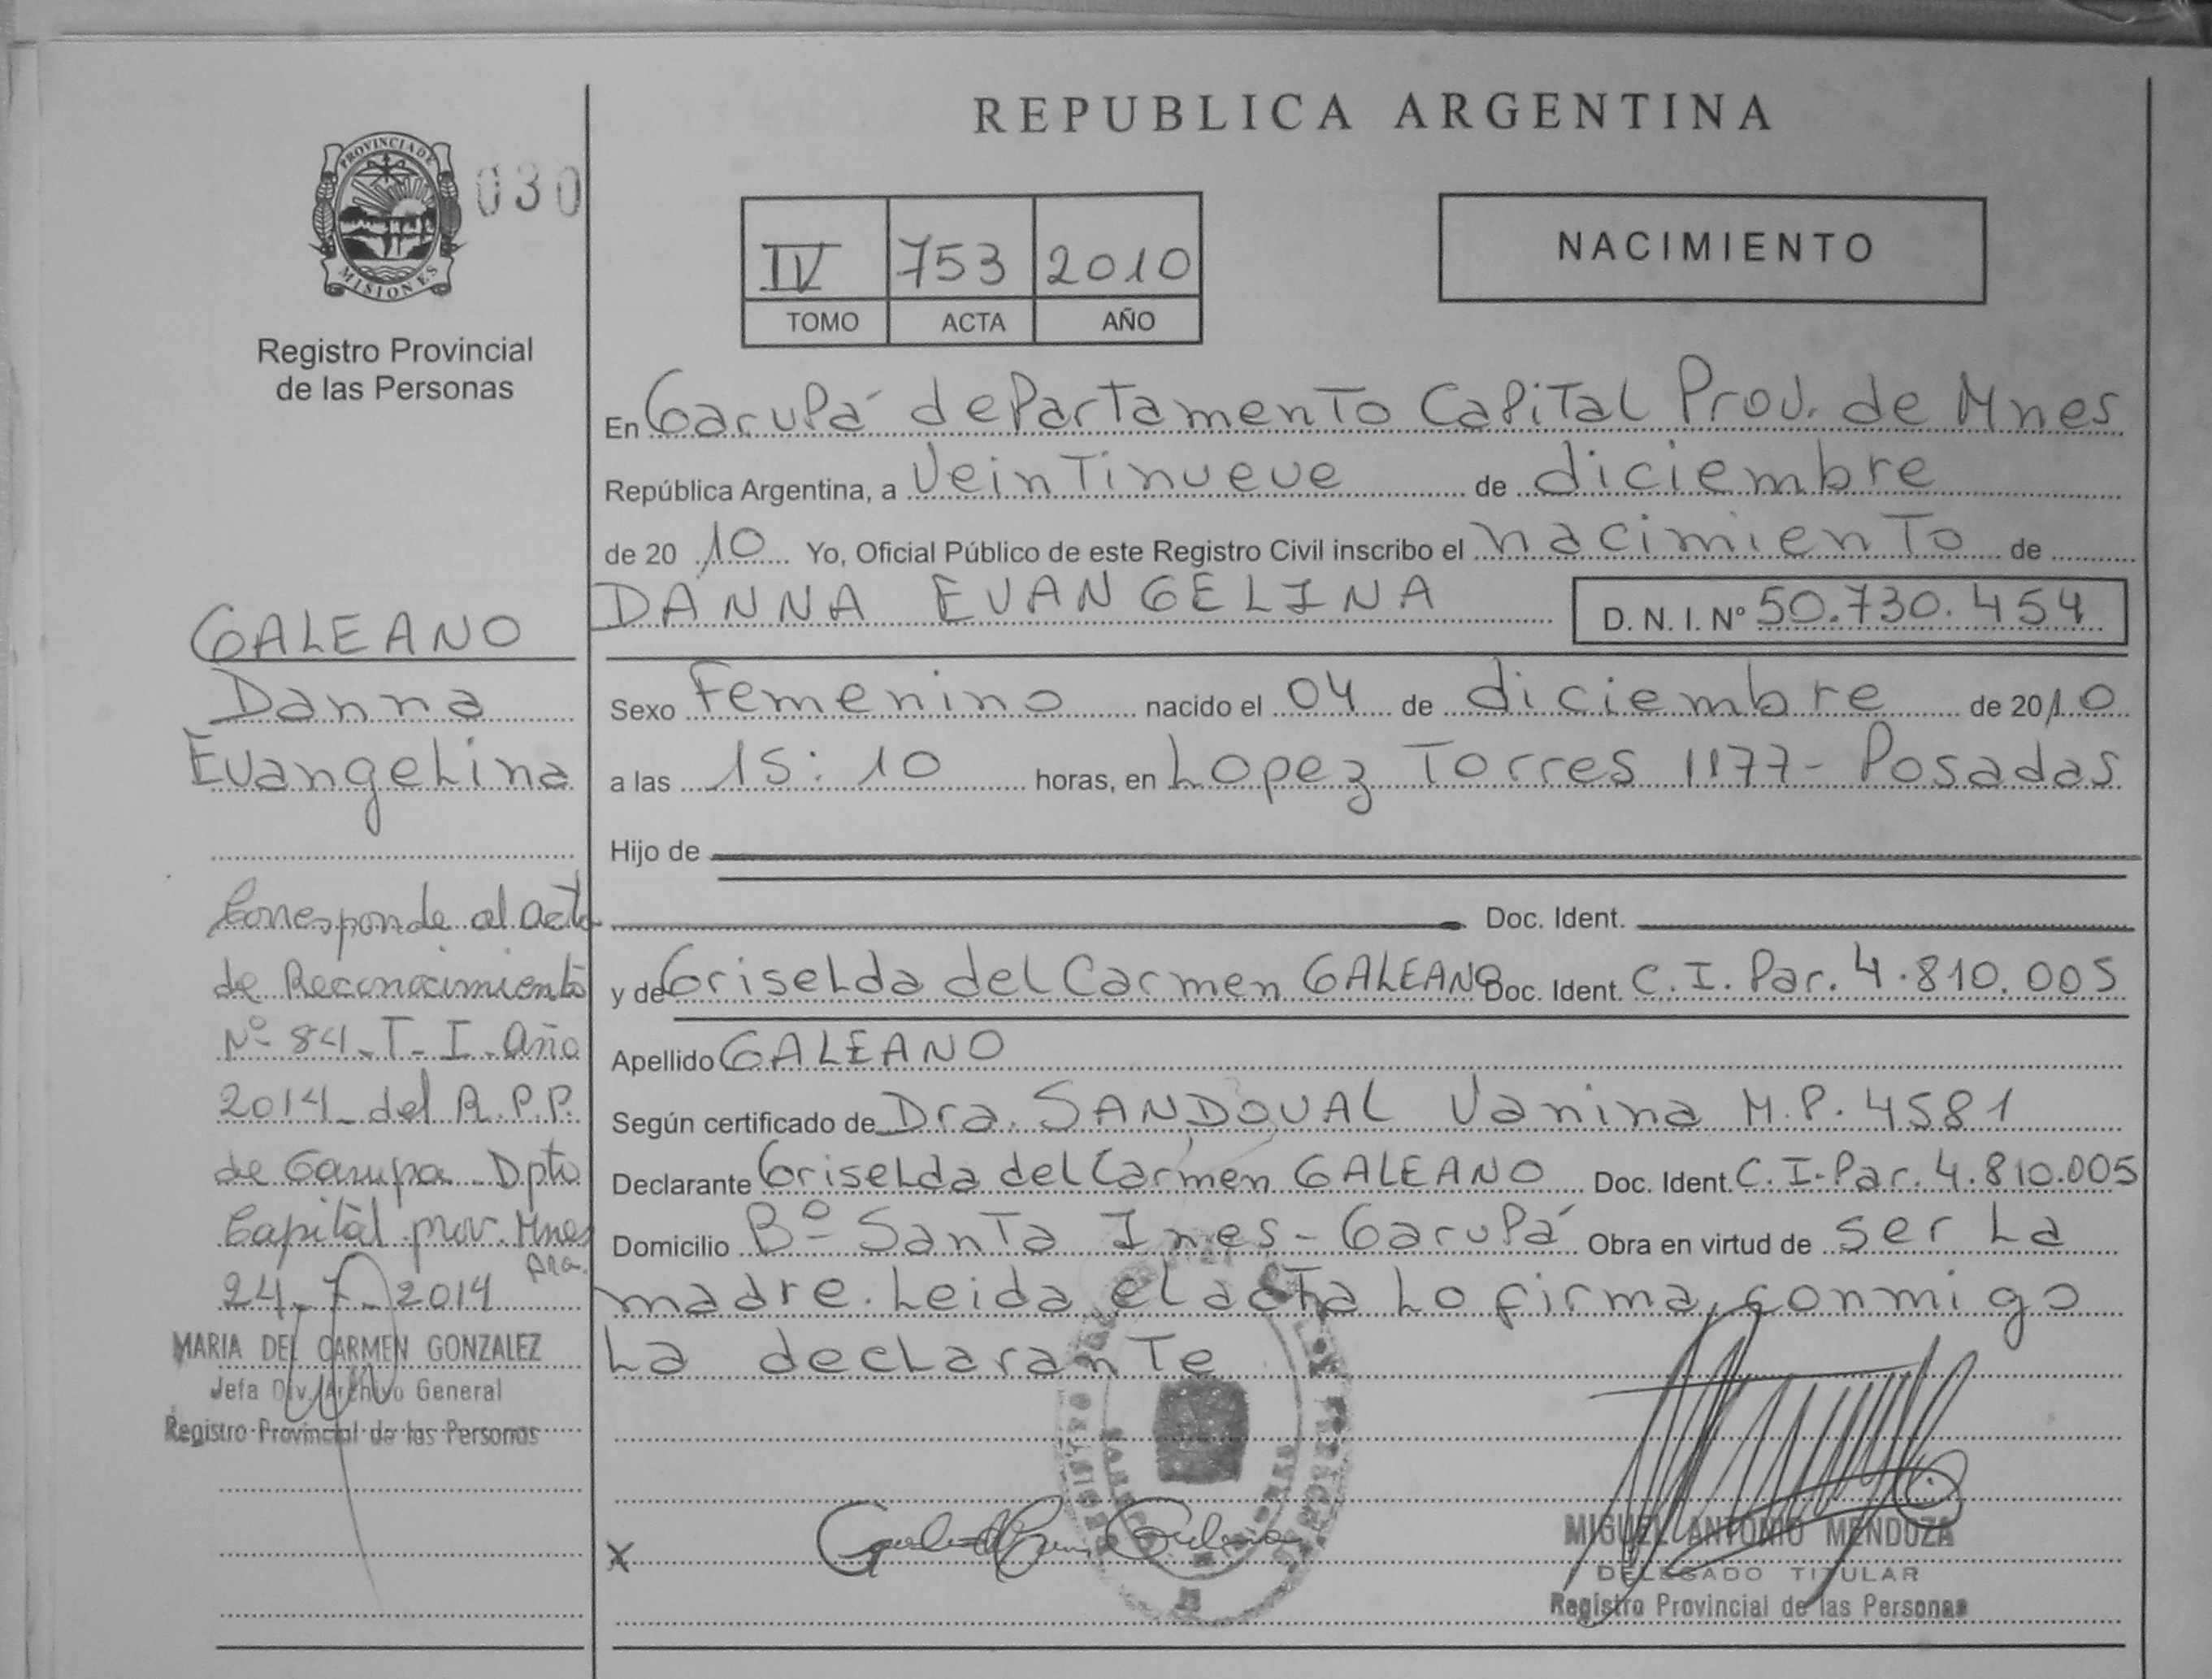 REPUBLICA ARGENTINA
PROVINCIA DE
MISIONES
030
Registro Provincial
de las Personas
IV 753 2010
TOMO ACTA AÑO
NACIMIENTO
En Garupá departamento Capital Prov. de Mnes
República Argentina, a Veintinueve de diciembre
de 20 10 Yo, Oficial Público de este Registro Civil inscribo el nacimiento de
DANNA EVANGELINA D. N. I. Nº 50.730.454
Sexo Femenino nacido el 04 de diciembre de 2010
a las 15:10 horas, en Lopez Torres 1177- Posadas
Hijo de
Doc. Ident.
y de Griselda del Carmen GALEANO Doc. Ident. C. I. Par. 4.810.005
Apellido GALEANO
Según certificado de Dra. SANDOVAL Vanina M.P. 4581
Declarante Griselda del Carmen GALEANO Doc. Ident. C. I. Par. 4.810.005
Domicilio Bº Santa Ines - Garupá Obra en virtud de ser la
madre. Leida el acta lo firma conmigo
la declarante
X
MIGUEL ANTONIO MENDOZA
DELEGADO TITULAR
Registro Provincial de las Personas
GALEANO
Danna
Evangelina
Corresponde al acta
de Reconocimiento
Nº 84 - T - I - Año
2014 - del R.P.P.
de Garupa - Dpto
Capital prov. Mnes
24 - 7 - 2014
MARIA DEL CARMEN GONZALEZ
Jefa Div. Archivo General
Registro Provincial de las Personas